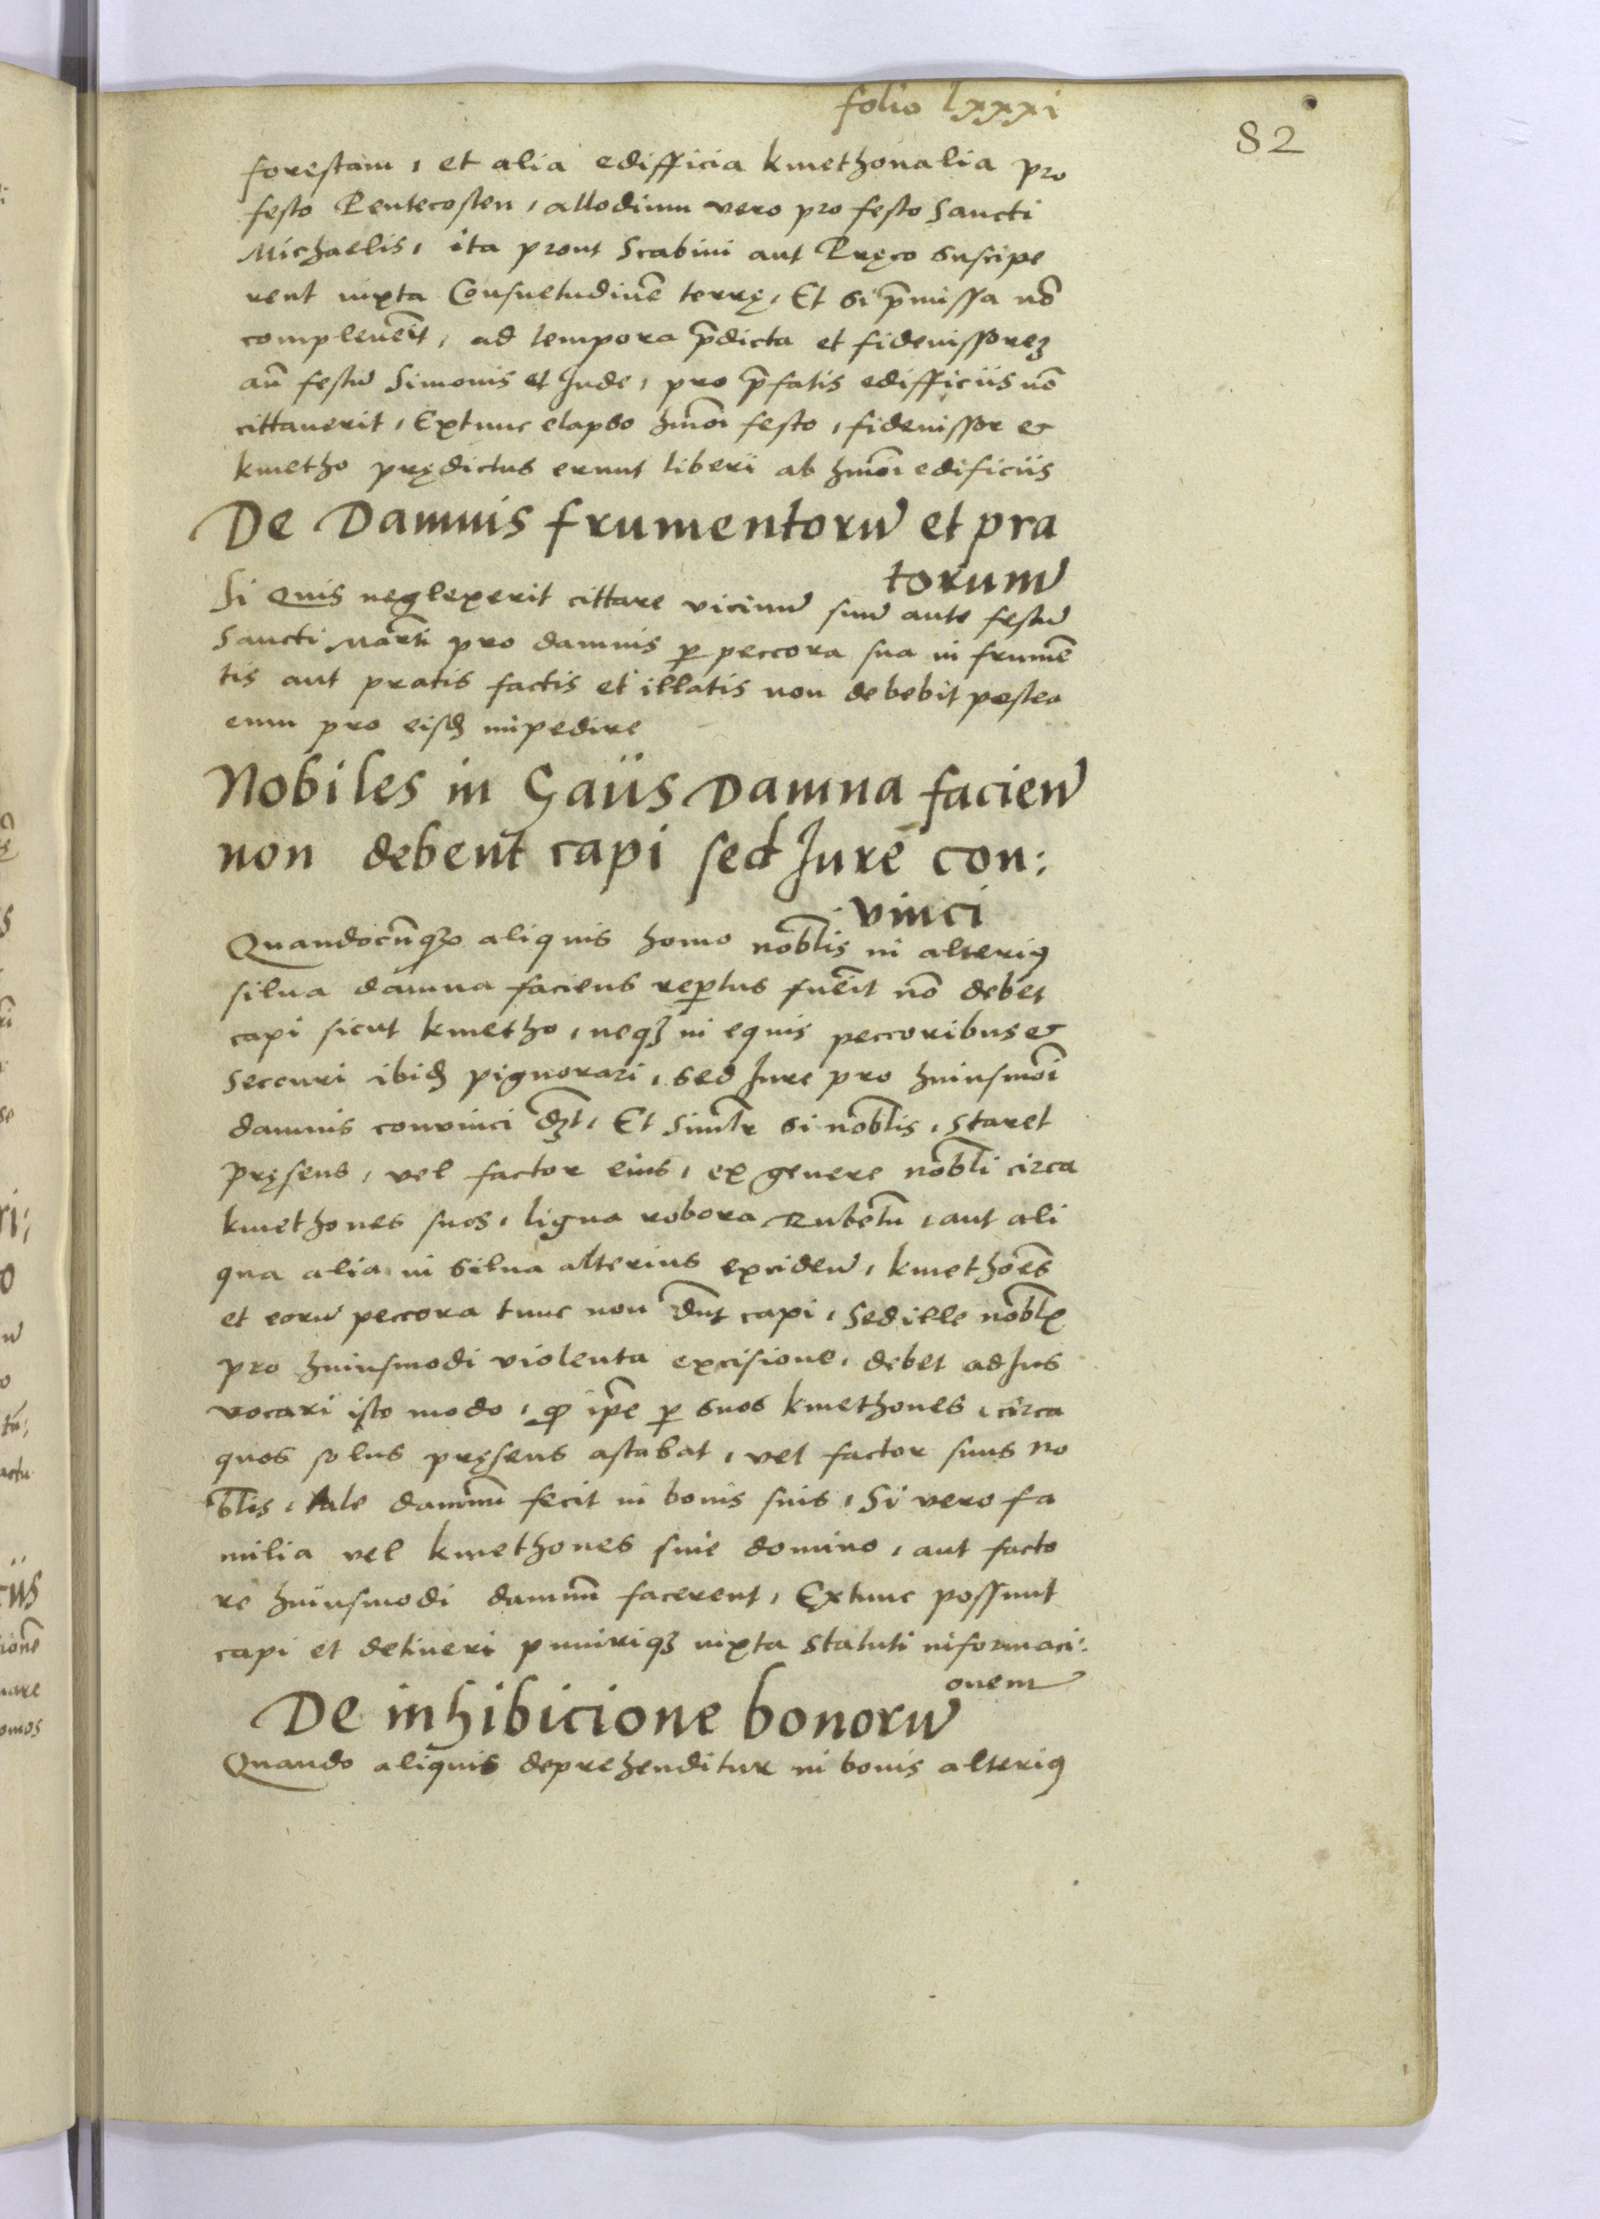 folio lxxxi
82
forestam, et alia edifficia kmethonalia pro
festo Pentecosten, allodium vero pro festo Sancti
Michaelis, ita prout Scabini aut Pręco suscipe
rent iuxta Consuetudinē terrę, Et si p̄missa nō
compleuerit, ad tempora p̄dicta et fideiussorez
an̄ festū Simonis et Jude, pro p̄fatis edifficiis nō
cittauerit, Extunc elapso hmōi festo, fideiussor et
kmetho prędictus erunt liberi ab hmōi edificiis
De Damnis frumentorū et pra
torum
Si Quis neglexerit cittare vicinū suū ante festū
Sancti Marti pro damnis p peccora sua in frumē
tis aut pratis factis et illatis non debebit postea
eum pro eisd impedire
Nobiles in Gaiis Damna facien
non debent capi sed Jure con:
vinci
Quandocūqz aliquis homo nobīlis in alterius
silua damna faciens reptus fuerit nō debet
capi sicut kmetho, neqz in equis peccoribus et
seccuri ibid pignorari, sed Jure pro huiusmōi
damnis convinci dzt, Et Simlr si nobīlis, staret
pręsens, vel factor eius, ex genere nobīli circa
kmethones suos, ligna robora Rubetū, aut ali
qua alia in silua alterius exciden, kmethōes
et eorū peccora tunc non dnt capi, Sed ille nobīlis
pro huiusmodi violenta excisione, debet ad Jus
vocari isto modo, q ip̄e p suos kmethones, circa
quos solus pręsens astabat, vel factor suus no
blis, tale damnū fecit in bonis suis, Si vero fa
milia vel kmethones sine domino, aut facto
re huiusmodi damnū facerent, Extunc possunt
capi et detineri puniriqz iuxta statuti informaci:
onem
De inhibicione bonorū
Quando aliquis deprehenditur in bonis alterius